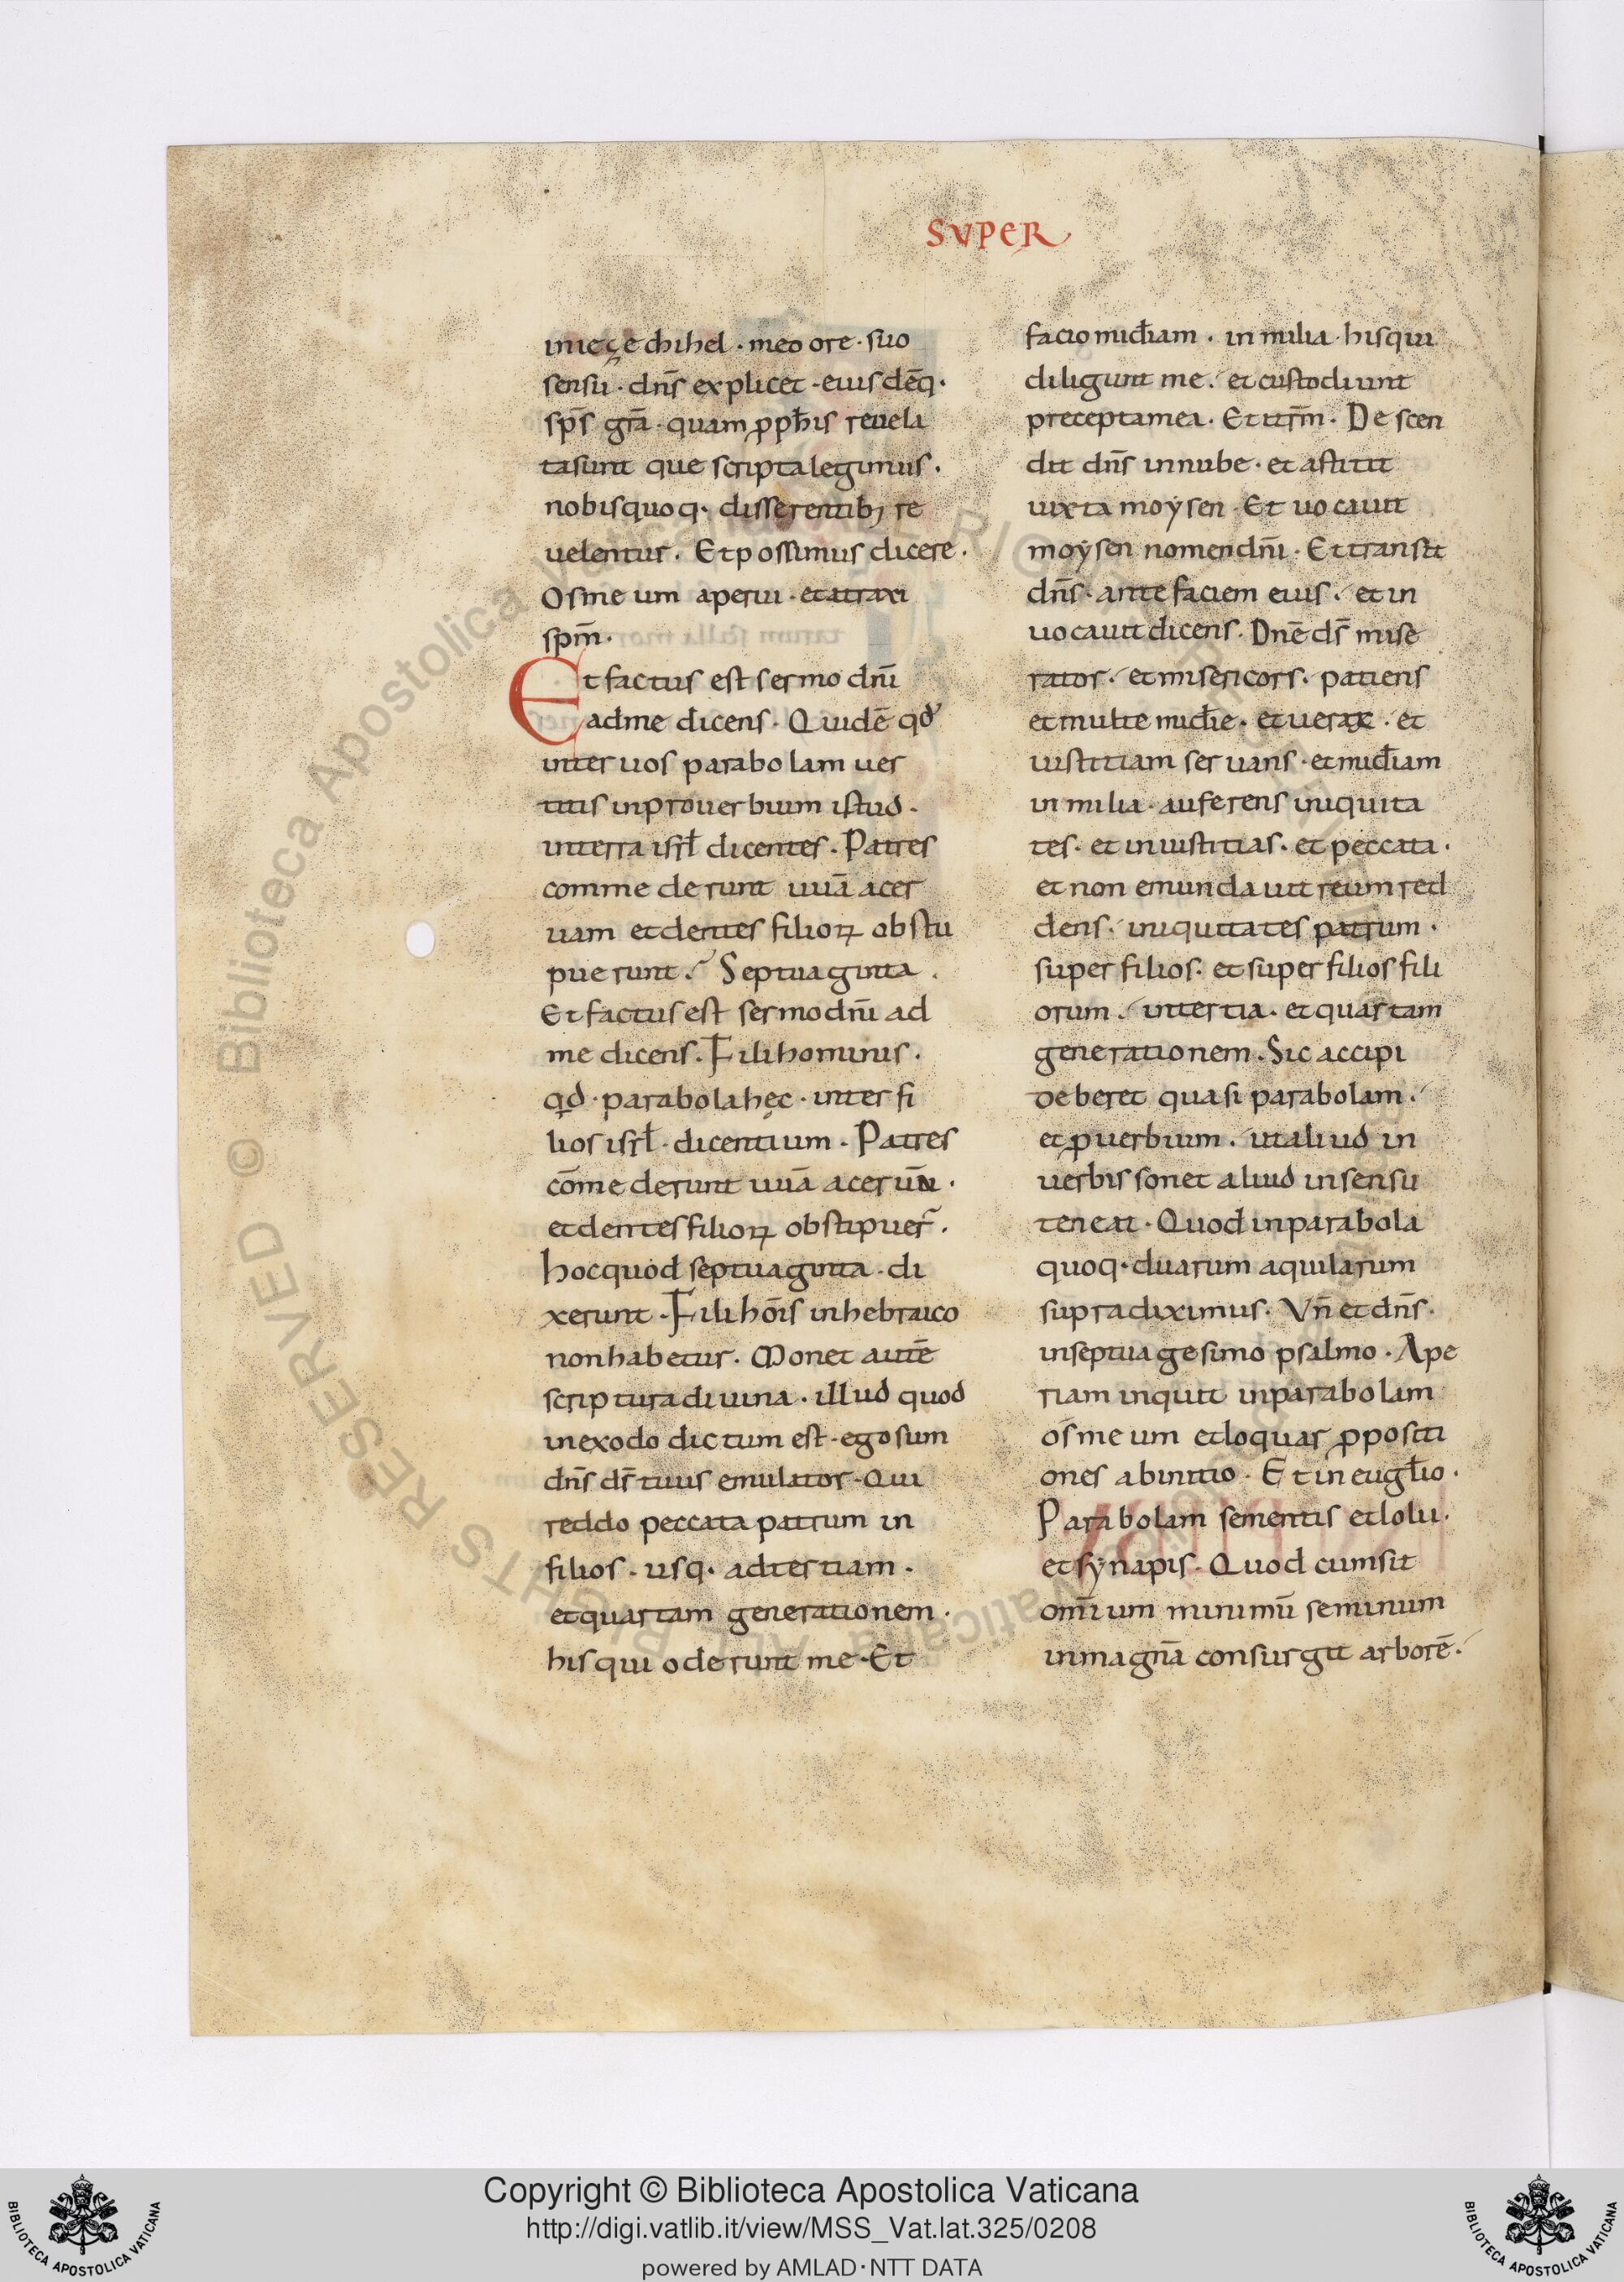 SVPER
inieçechihel · meo ore · suo
sensu · dn̄s explicet · eiusdēq·
sp̄s grā · quam ꝓpħis reuela
ta sunt que scripta legimus ·
nobis quoq· disserentib; re
uelentur . Et possimus dicere .
Os meum aperui · et atraxi
spm̄ .
Et factus est sermo dnī
ad me dicens . Quid ē qđ
inter uos parabolam uer
titis in prouerbium istud .
in terra isrł dicentes . Patres
commederunt uuā acer
uam et dentes filioꝝ obstu
puerunt . Septuaginta .
Et factus est sermo dnī ad
me dicens . Fili hominis .
qđ · parabola hęc · inter fi
lios isrł · dicentium . Patres
cōmederunt uuā aceruā .
et dentes filioꝝ obstipuer̄ .
hoc quod septuaginta · di
xerunt . Fili hōis in hebraico
non habetur . Monet autē
scriptura diuina . illud quod
in exodo dictum est · ego sum
dn̄s ds̄ tuus emulator · Qui
reddo peccata patrum in
filios . usq· ad tertiam .
et quartam generationem .
his qui oderunt me · Et
facio mid̄iam . in milia · his qui
diligunt me . et custodiunt
precepta mea . Et iterm̄ . Descen
dit dn̄s in nube · et astitit
iuxta moẏsen . Et uocauit
moẏsen nomen dnī . Et transit
dn̄s · ante faciem eius . et in
uocauit dicens . Dnē ds̄ mise
rator . et misericors . patiens
et multe mid̄ie . et uerax . et
iustitiam seruans . et mid̄iam
in milia . auferens iniquita
tes . et iniustitias . et peccata .
et non emundauit reum red
dens . iniquitates patrum .
super filios . et super filios fili
orum . in tertia . et quartam
generationem . Sic accipi
deberet quasi parabolam .
et ꝓuerbium . ut aliud in
uerbis sonet aliud in sensu
teneat . Quod in parabola
quoq· duarum aquilarum
supra diximus . Vn̄ et dn̄s .
in septuagesimo psalmo . Ape
riam inquit in parabolam
os meum et loquar ꝓpositi
ones ab initio . Et in eugl̄io .
Parabolam sementis et lolii .
et sẏnapis . Quod cum sit
omīum minimū seminum
in magnā consurgit arborē .
Copyright © Biblioteca Apostolica Vaticana
http://digi.vatlib.it/view/MSS_Vat.lat.325/0208
powered by AMLAD · NTT DATA
BIBLIOTECA APOSTOLICA VATICANA
BIBLIOTECA APOSTOLICA VATICANA